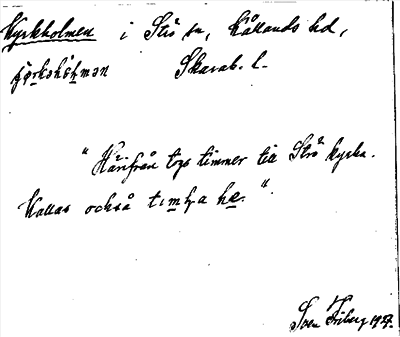 Kyrkholmen i Strö sn, Kållands hd,
Skarab. l.
"Härifrån togs timmer till Strö kyrka.
Kallas också timra he."
Sven Friberg 1927.